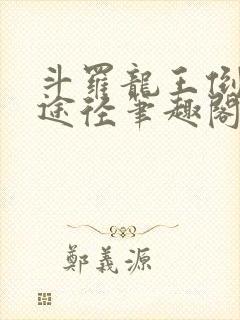 斗羅龍王倒
途徑筆趣閣
鄭義源